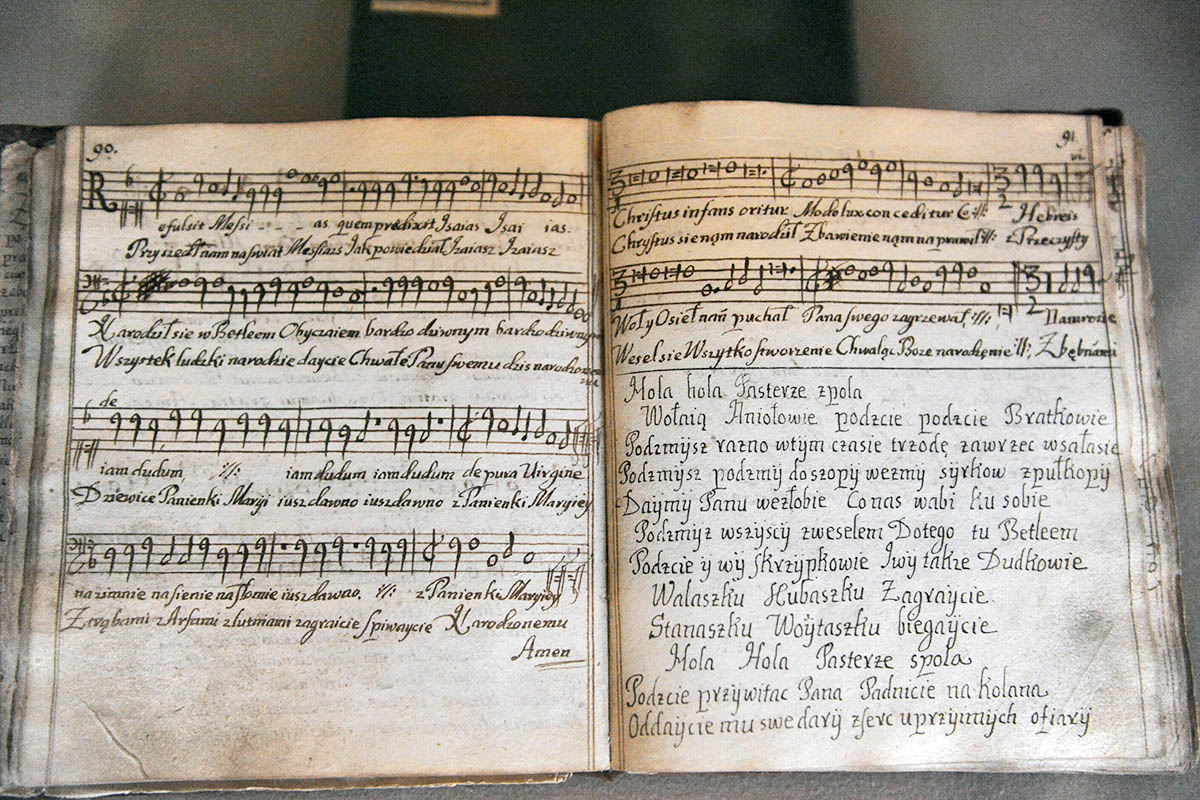 90.
R
efulsit Messi - - - as quem predixit Isaias Isai ias.
Przyszedł nam na swiat Messiasz Iak powiedział Izaiasz Izaiasz
Narodził sie w Betleem Obyczaiem bardzo dziwnym bardzo dziwnym
Wszystek ludzki narodzie daycie Chwałe Panu swemu dzis narodzone
de
iam dudum, ://: iam dudum iam dudum de pura Virgine
Dziewice Panienki Maryi iusz dawno iusz dawno z Panienki Maryiey
na zimnie na sienie na słomie iusz dawno. ://: z Panienki Maryiey
Z trąbami z Arfami z lutniami zagraicie spiwaycie Narodzonemu
Amen
91.
Christus infans oritur Modo lux conceditur ://: Hebreis
Chrystus sie nam narodził Zbawienie nam naprawił ://: z Przeczysty
Woły Osieł nań puchał Pana swego zagrzewał, ://:
Wesel sie Wszytko stworzenie Chwaląc Boze narodzęnie ://: Z bębnami
Hola hola Pasterze z pola
Wołaią Aniołowie podzcie podzcie Bratkowie
Podzmijsz razno wtÿm czasie trzodę zawrzec w sałasie
Podzmijsz podzmij do szopÿ wezmij sÿrkow z pułkopÿ
Daÿmÿ Panu wezłobie Co nas wabi ku sobie
Podzmÿz wszÿscÿ z weselem Do tego tu Betleem
Podzcie ÿ wÿ skrzÿpkowie I wÿ także Dudkowie
Walaszku Kubaszku Zagraÿcie.
Stanaszku Woÿtaszku biegaÿcie
Hola Hola Pasterze s pola
Podzcie przÿwitac Pana Padnicie na kolana
Oddaÿcie mu swe darÿ z serc uprzÿmÿch ofiarÿ